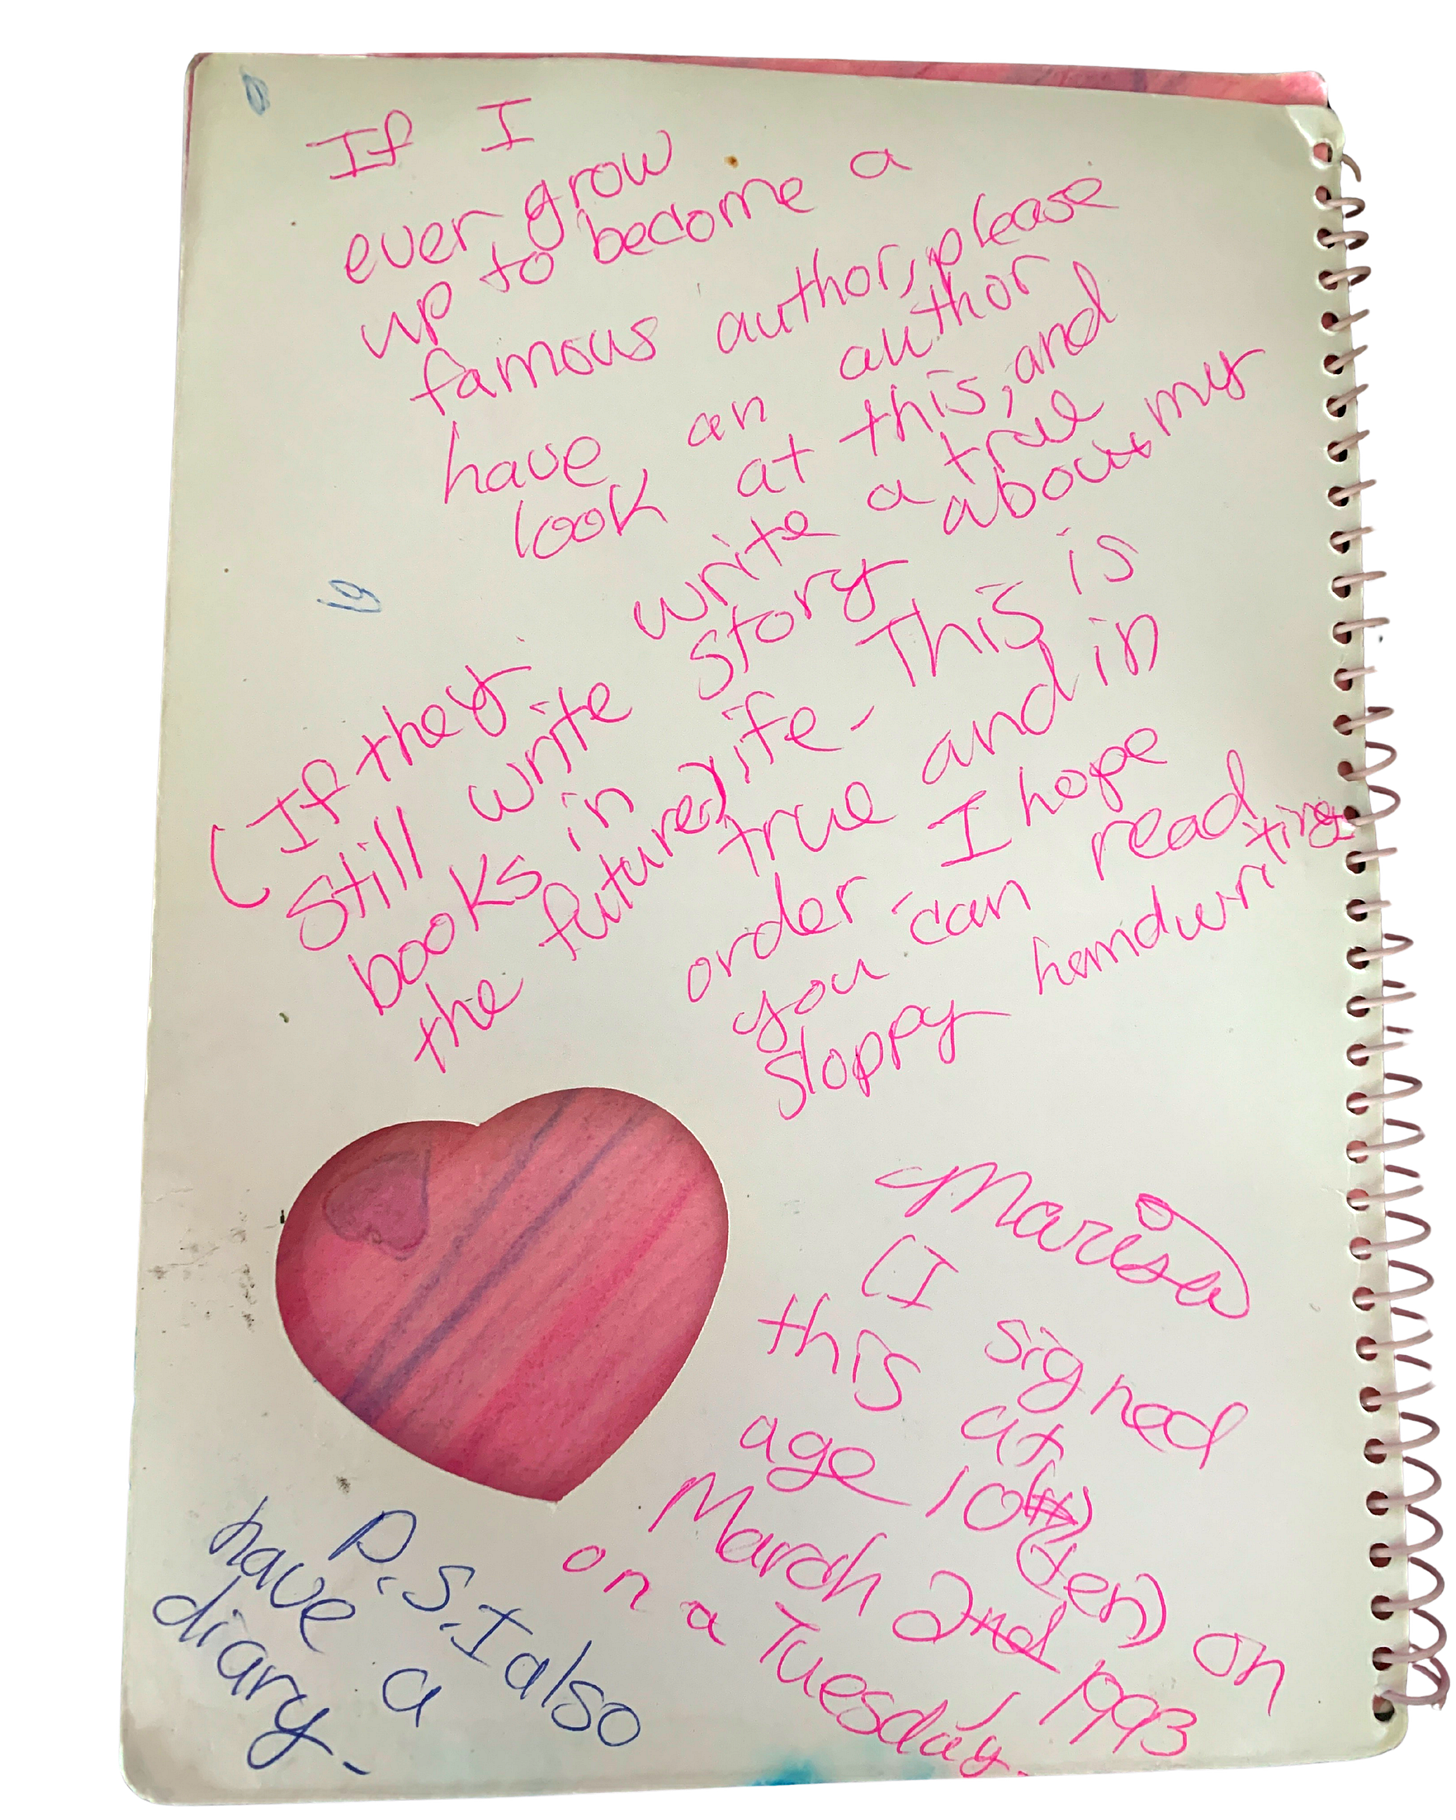 If I
ever grow
up to become a
famous author, please
have an author
look at this, and
write a true
story about my
life. This is
true and in
order I hope
you can read
sloppy handwriting
(If they
still write
books in
the future)
Marisa
(I signed
this at
age 10 (ten) on
March 2nd, 1993
on a Tuesday.
P.S. I also
have a
diary.